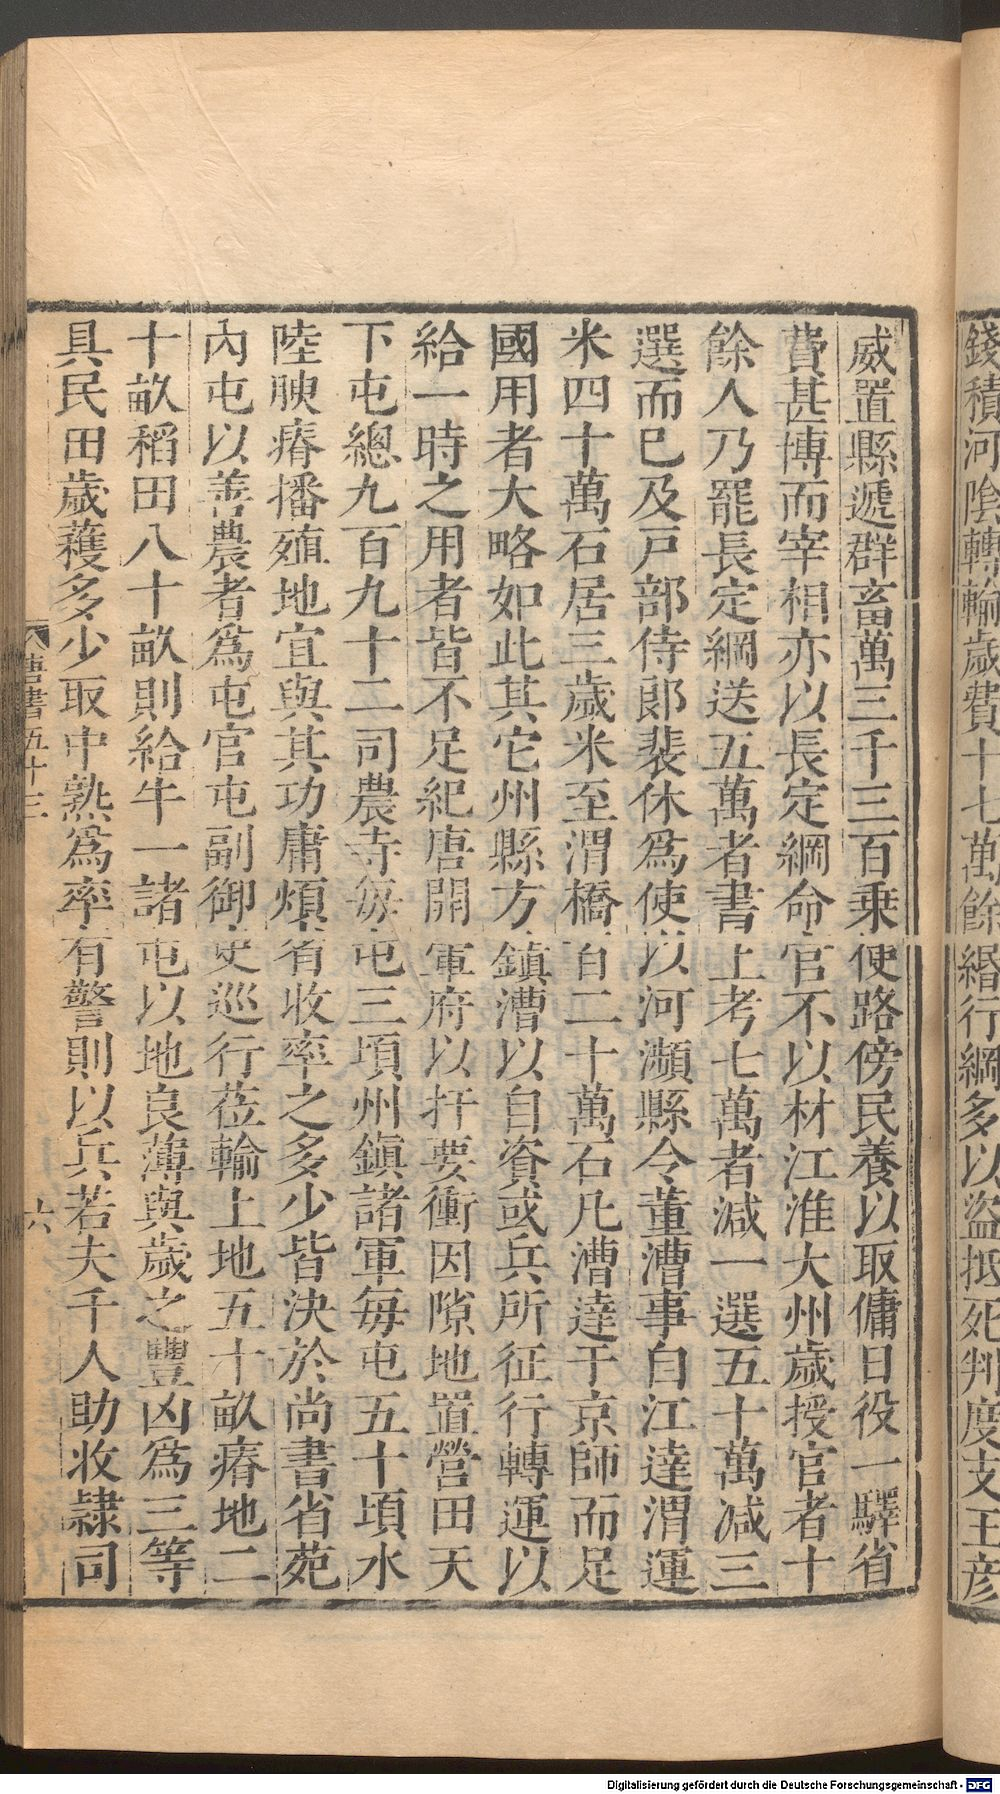 錢積河陰轉輸歲費十七萬餘緡行綱多以盜抵死判度支王彦
威置縣遞群畜萬三千三百乗使路傍民養以取傭日役一驛省
費甚博而宰相亦以長定綱命官不以材江淮大州歲授官者十
餘人乃罷長定綱送五萬者書上考七萬者減一選五十萬减三
選而已及戸部侍郎裴休爲使以河瀕縣令董漕事自江達渭運
米四十萬石居三歲米至渭橋百二十萬石凡漕達于京師而足
國用者大略如此其它州縣方鎮漕以自資或兵所征行轉運以
給一時之用者皆不足紀唐開軍府以扞要衝因隙地置營田天
下屯總九百九十二司農寺每屯三頃州鎮諸軍每屯五十頃水
陸腴瘠播殖地宜與其功庸煩省收率之多少皆決於尚書省苑
內屯以善農者爲屯官屯副御史巡行莅輸上地五十畝瘠地二
十畝稻田八十畝則給牛一諸屯以地良薄與歲之豐凶爲三等
具民田歲穫多少取中熟爲率有警則以兵若夫千人助收隷司
唐書五十三
六
Digitalisierung gefördert durch die Deutsche Forschungsgemeinschaft - DFG